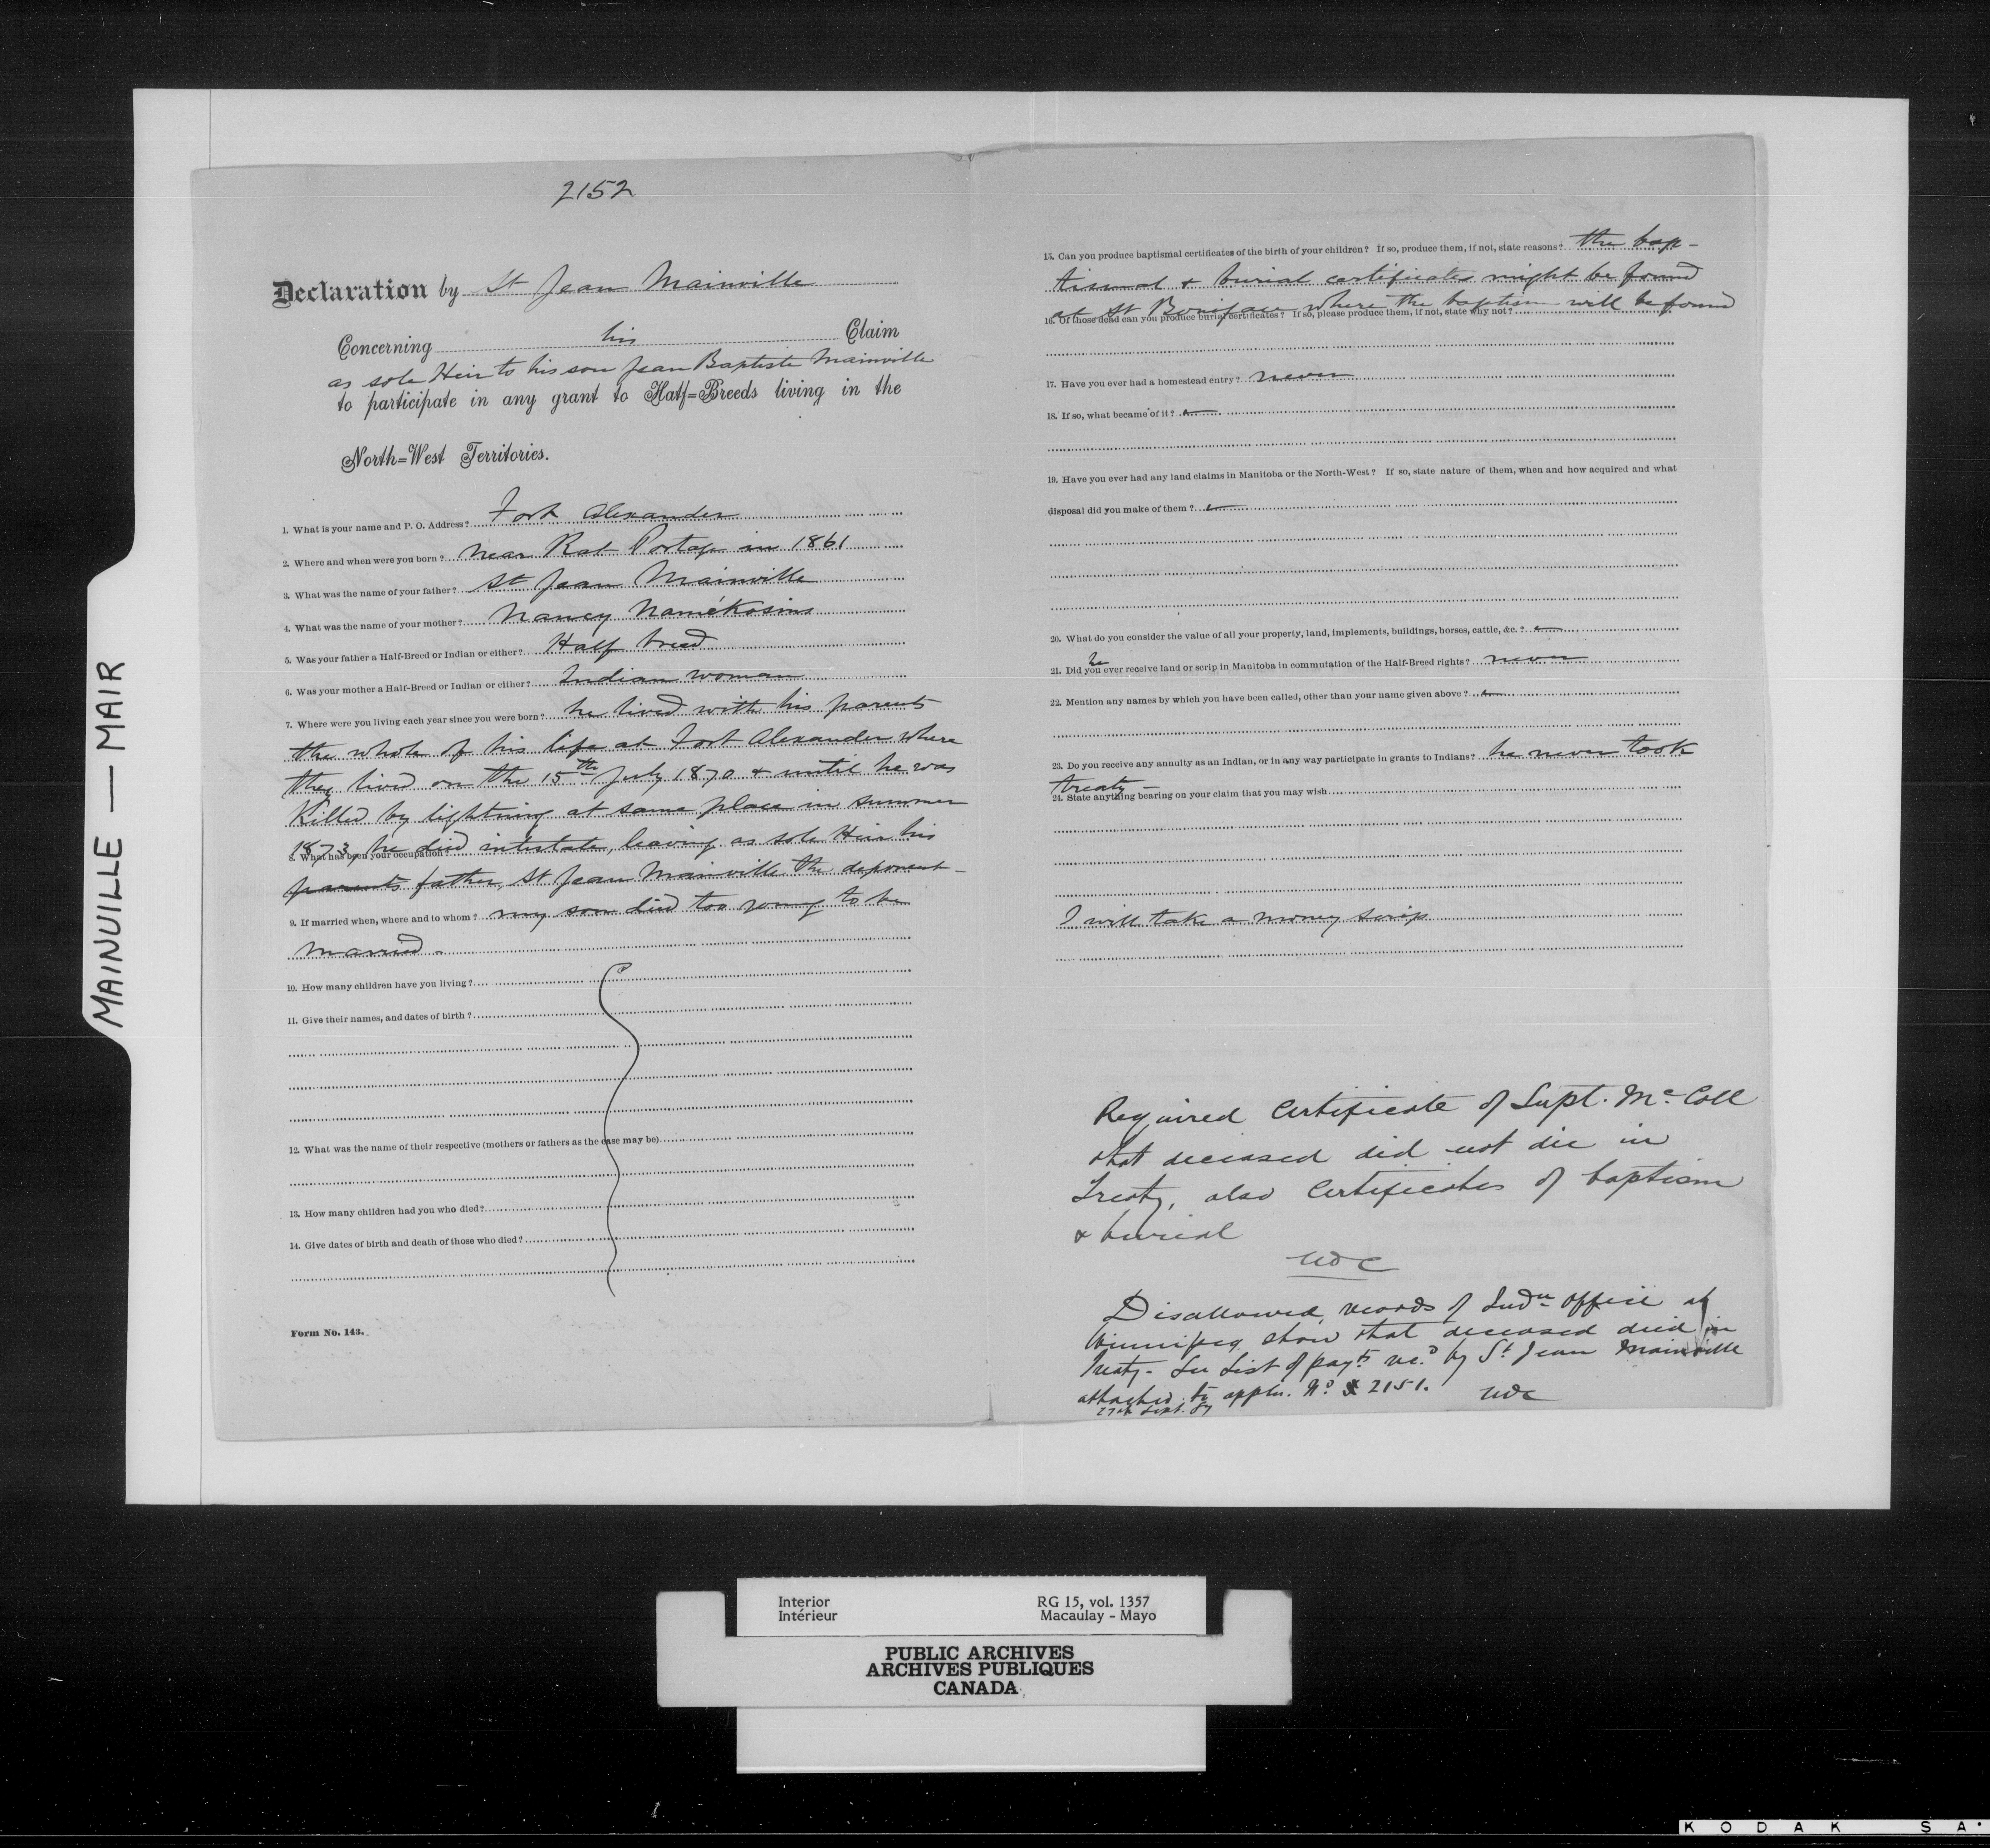 MAINVILLE — MAIR
2152
Declaration by St Jean Mainville
Concerning his Claim
as sole Heir to his son Jean Baptiste Mainville
to participate in any grant to Half=Breeds living in the
North=West Territories.
1. What is your name and P. O. Address? Fort Alexander
2. Where and when were you born? near Rat Portage in 1861
3. What was the name of your father? St Jean Mainville
4. What was the name of your mother? Nancy Namékosins
5. Was your father a Half-Breed or Indian or either? Half breed
6. Was your mother a Half-Breed or Indian or either? Indian woman
7. Where were you living each year since you were born? he lived with his parents
the whole of his life at Fort Alexander where
they lived on the 15th July 1870 & until he was
Killed by lightning at same place in summer
1873, he died intestate, leaving as sole Heir his
8. What has been your occupation?
parents father, St Jean Mainville the deponent –
9. If married when, where and to whom? my son died too young to be
married –
10. How many children have you living?
11. Give their names, and dates of birth?
12. What was the name of their respective (mothers or fathers as the case may be)
13. How many children had you who died?
14. Give dates of birth and death of those who died?
Form No. 143.
15. Can you produce baptismal certificates of the birth of your children? If so, produce them, if not, state reasons? the bap-
tismal & burial certificates might be found
at St Boniface where the baptism will be found
16. Of those dead can you produce burial certificates? If so, please produce them, if not, state why not?
17. Have you ever had a homestead entry? never
18. If so, what became of it?
19. Have you ever had any land claims in Manitoba or the North-West? If so, state nature of them, when and how acquired and what
disposal did you make of them?
20. What do you consider the value of all your property, land, implements, buildings, horses, cattle, &c.?
21. Did you he ever receive land or scrip in Manitoba in commutation of the Half-Breed rights? never
22. Mention any names by which you have been called, other than your name given above?
23. Do you receive any annuity as an Indian, or in any way participate in grants to Indians? he never took
treaty –
24. State anything bearing on your claim that you may wish
I will take a money scrip
Required Certificate of Supt. McColl
that deceased did not die in
Treaty, also Certificates of baptism
& burial
Disallowed, records of Indn Office at
Winnipeg show that deceased died in
Treaty – See List of payts recd by St Jean Mainville
attached to appln. No 2151.
27th Sept. 87
Interior RG 15, vol. 1357
Intérieur Macaulay - Mayo
PUBLIC ARCHIVES
ARCHIVES PUBLIQUES
CANADA
KODAK SA